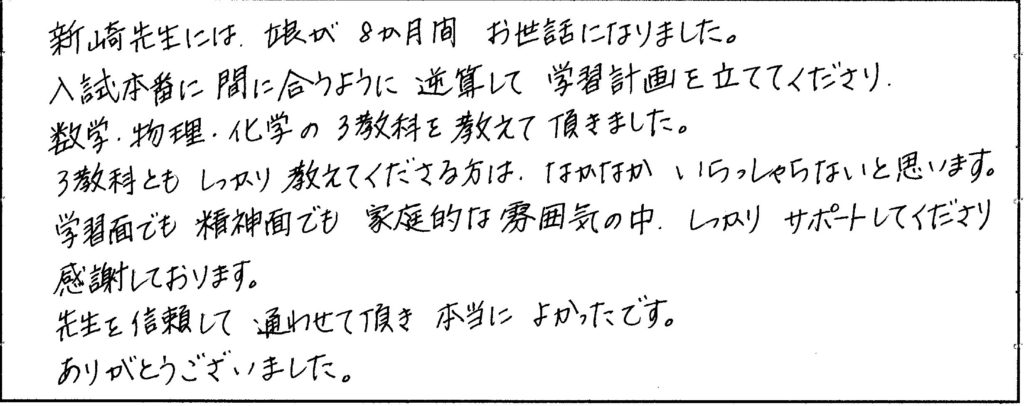 新崎先生には、娘が 8か月間 お世話になりました。
入試本番に間に合うように 逆算して 学習計画を立ててくださり、
数学・物理・化学の 3教科を教えて頂きました。
3教科とも しっかり教えてくださる方は、なかなか いらっしゃらないと思います。
学習面でも 精神面でも 家庭的な雰囲気の中、しっかり サポートしてくださり
感謝しております。
先生を信頼して 通わせて頂き 本当に よかったです。
ありがとうございました。